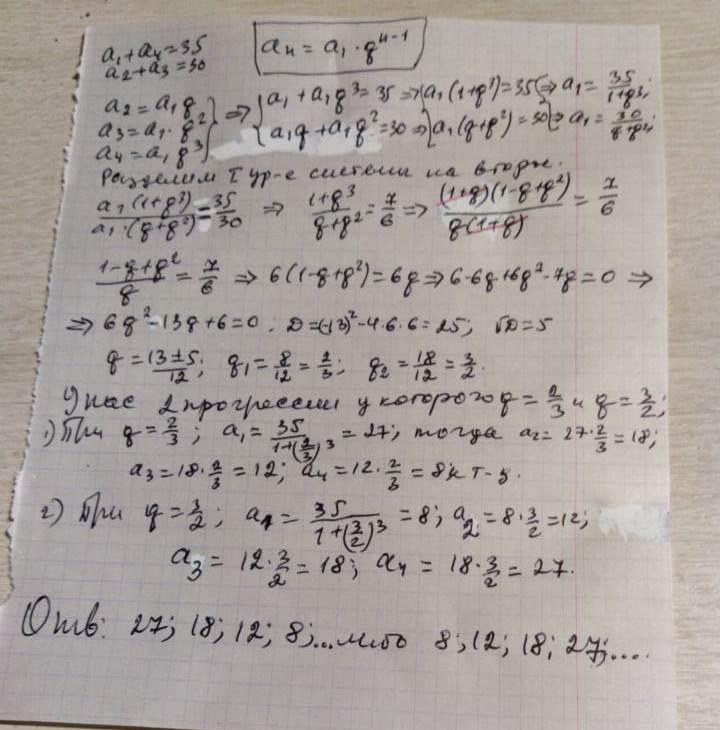 a₁+a₄=35
a₂+a₃=30
aₙ = a₁ · qⁿ⁻¹
a₂ = a₁q
a₃ = a₁ · q²
a₄ = a₁q³ } ⇒ { a₁ + a₁q³ = 35 ⇒ { a₁(1+q³) = 35 { ⇒ a₁ = 35/(1+q³);
{ a₁q + a₁q² = 30 ⇒ } a₁(q+q²) = 30 } ⇒ a₁ = 30/(q+q²);
Разделим I ур-е системы на второе.
a₁(1+q³)/a₁·(q+q²) = 35/30 ⇒ (1+q³)/(q+q²) = 7/6 ⇒ (1+q)(1-q+q²)/q(1+q) = 7/6
(1-q+q²)/q = 7/6 ⇒ 6(1-q+q²) = 6q ⇒ 6-6q+6q²-7q = 0 ⇒
⇒ 6q²-13q+6=0. D=(-13)²-4·6·6=25; √D=5
q = (13±5)/12; q₁ = 8/12 = 2/3; q₂ = 18/12 = 3/2.
У нас 2 прогрессии у которого q = 2/3 и q = 3/2;
1) При q = 2/3; a₁ = 35/(1+(2/3)³) = 27; тогда a₂ = 27·2/3 = 18;
a₃ = 18·2/3 = 12; a₄ = 12·2/3 = 8
2) При q = 3/2; a₁ = 35/(1+(3/2)³) = 8; a₂ = 8·3/2 = 12;
a₃ = 12·3/2 = 18; a₄ = 18·3/2 = 27.
Отв: 27; 18; 12; 8;... либо 8; 12; 18; 27;....